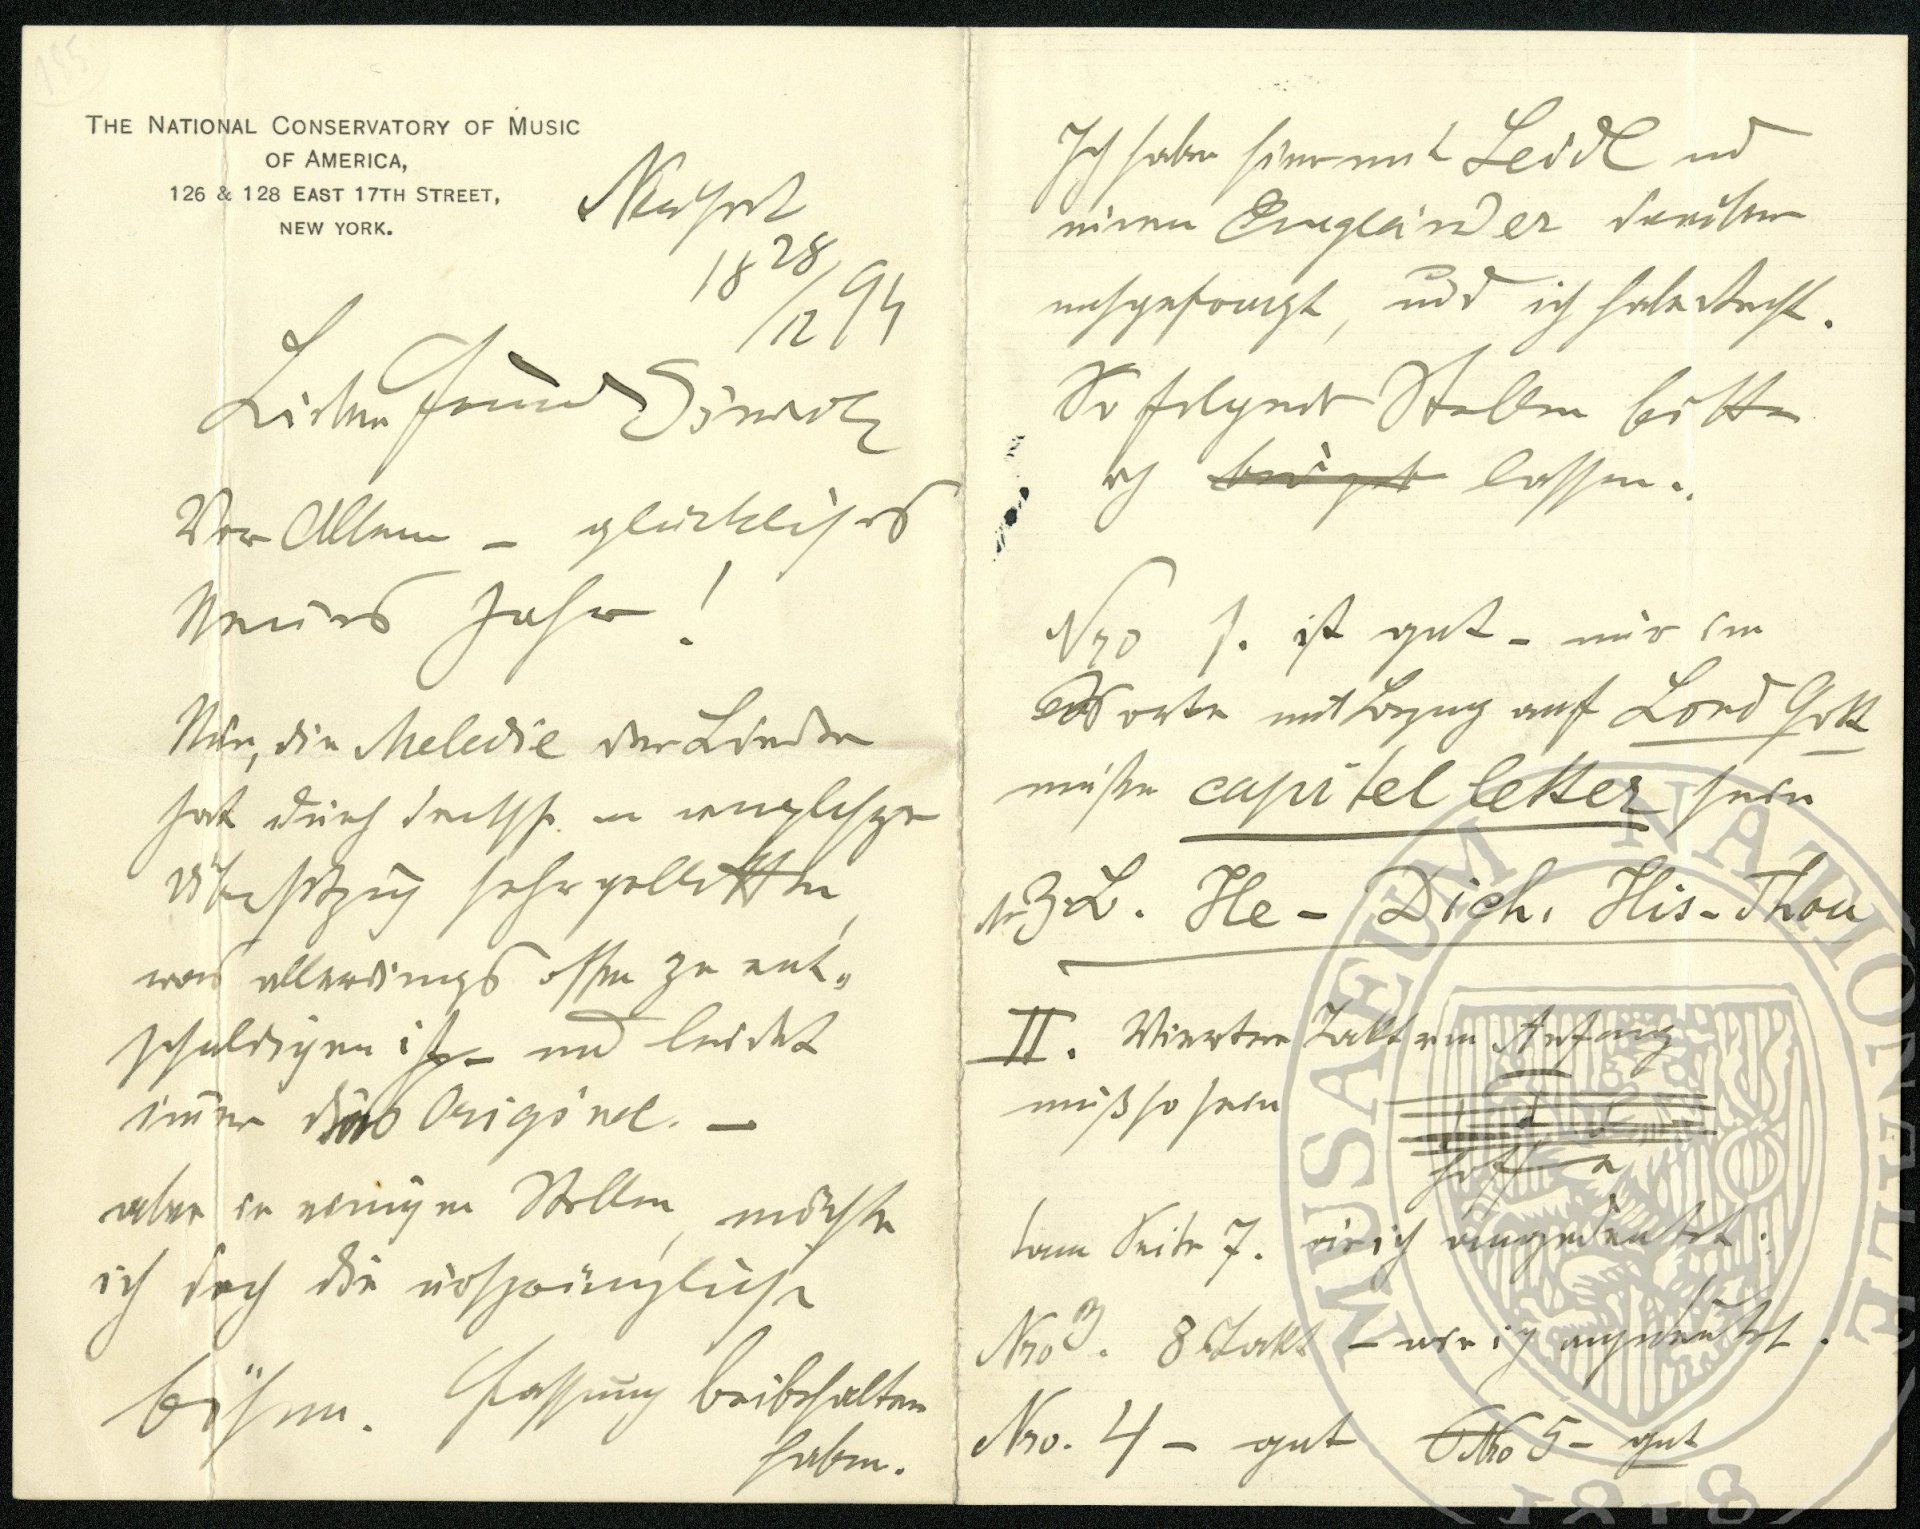 THE NATIONAL CONSERVATORY OF MUSIC
OF AMERICA,
126 & 128 EAST 17TH STREET,
NEW YORK.
Newyork
18 28/12 94
Lieber Freund Simrock
Vor Allem – glückliches
Neues Jahr!
Nur, die Melodie der Lieder
hat durch deutsche u englische
Übersetzung sehr gelitten,
was allerdings offen zu ent„
schuldigen ist – und leidet
immer das Original. –
aber in einigen Stellen, möchte
ich doch die ursprüngliche
böhm. Fassung beibehalten
haben.
Ich habe hier mit Seidl und
einem Engländer darüber
nachgefragt, und ich habe Recht.
So folgende Stellen bitte
ich lassen.
Nro 1. ist gut – nur im
Worte mit Bezug auf Lord Gott
muße capitel letter sein
z. B. He – Dich, His – Thou
II. Vierter Takt vom Anfang
muß so sein
dann Seite 7. wie ich angedeutet.
Nro 3. 8 Takt – wie ich angedeutet.
Nro. 4 – gut Nro 5 – gut
MUSAEUM NATIONALE
1818